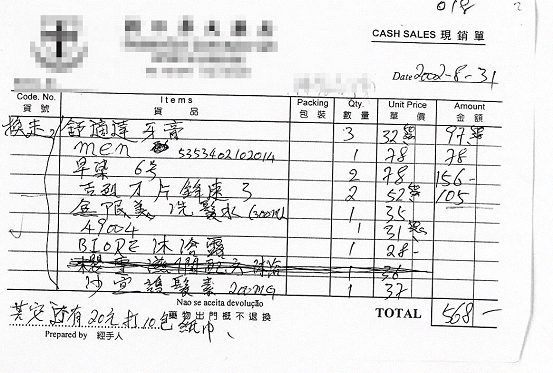 018
CASH SALES 現銷單
Date 2002-8-31
Code. No. Items Packing Qty. Unit Price Amount
貨號 貨品 包裝 數量 單價 金額
舒適達 牙膏 3 32 97
men 5353402102014 1 78 78
6号 2 78 156-
吉列 刀片 3 2 52 105
洗髮水 1 35
49004 1 31
BIORE 沐浴露 1 28-
1 36
沙宣 200MG 1 37
Nao se aceita devolução
藥物出門概不退換
TOTAL 568-
還有20元 10包紙巾
Prepared by 經手人